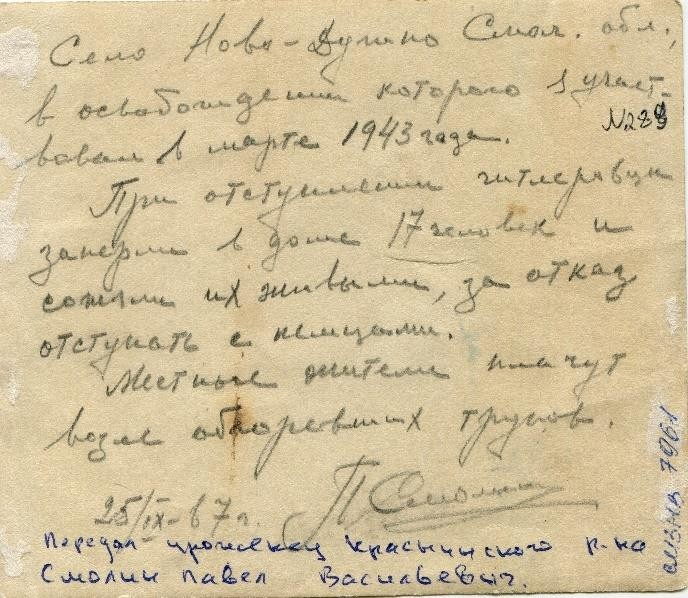 Село Ново-Дугино Смол. обл.,
в освобождении которого я участ-
вовал в марте 1943 года.
№289
При отступлении гитлеровцы
заперли в доме 17 человек и
сожгли их живыми, за отказ
отступать с немцами.
Местные жители плачут
возле обгоревших трупов.
25/IX-67г. П Смолин
Передал уроженец Краснинского р-на
Смолин Павел Васильевич.
7961